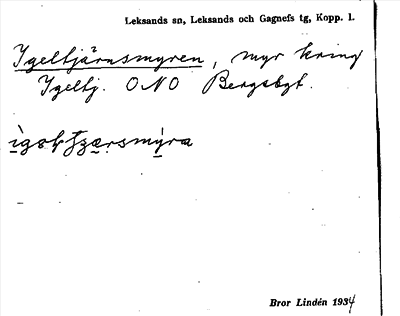 Leksands sn, Leksands och Gagnefs tg, Kopp. l.
Igeltjärnsmyren, myr kring
Igeltj. ONO Bergsbgt.
Bror Lindén 1934